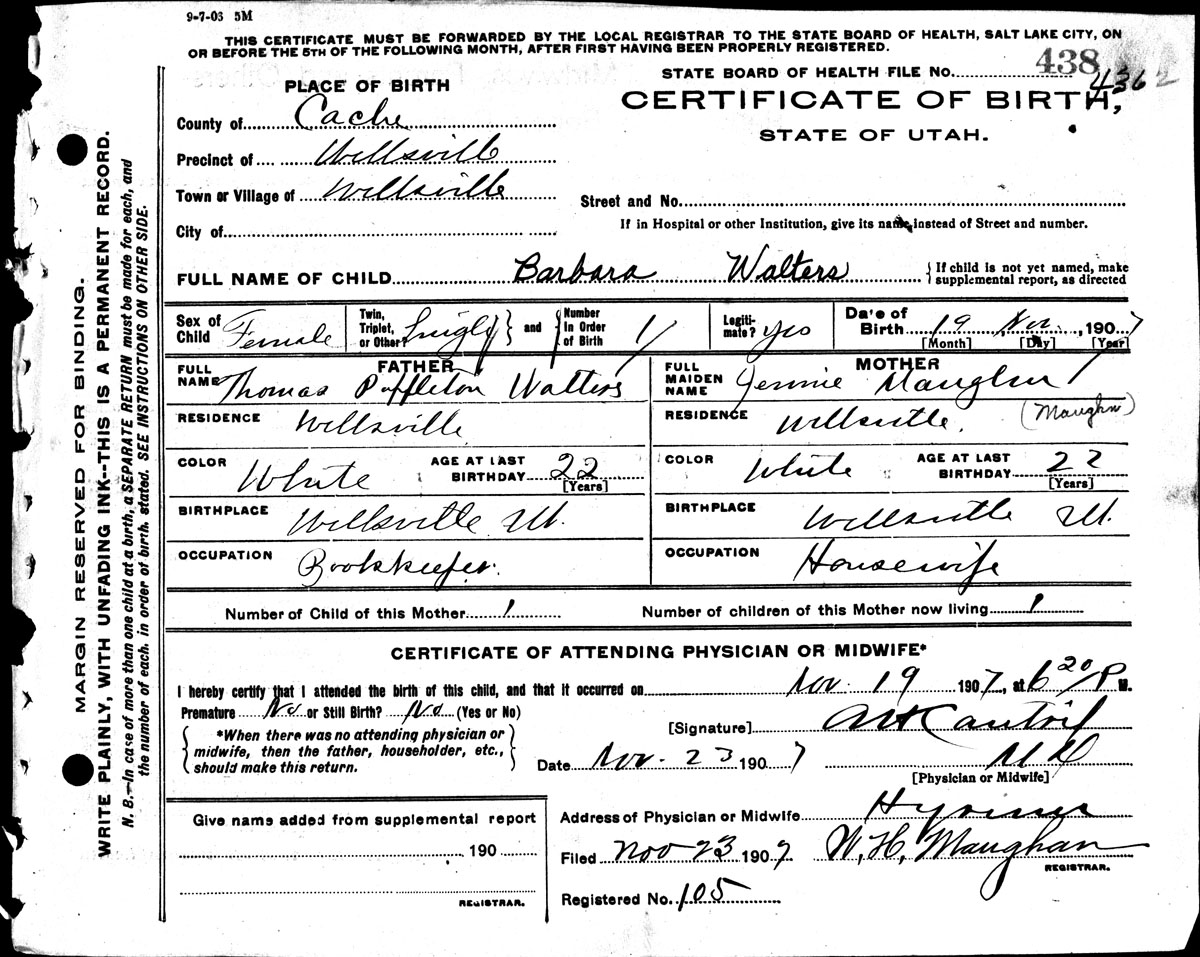 9-7-03 5M
THIS CERTIFICATE MUST BE FORWARDED BY THE LOCAL REGISTRAR TO THE STATE BOARD OF HEALTH, SALT LAKE CITY, ON
OR BEFORE THE 5TH OF THE FOLLOWING MONTH, AFTER FIRST HAVING BEEN PROPERLY REGISTERED.
438
STATE BOARD OF HEALTH FILE No. 4362
CERTIFICATE OF BIRTH,
STATE OF UTAH.
PLACE OF BIRTH
County of Cache
Precinct of Wellsville
Town or Village of Wellsville
City of
Street and No.
If in Hospital or other Institution, give its name, instead of Street and number.
FULL NAME OF CHILD Barbara Walters
{ If child is not yet named, make
supplemental report, as directed
Sex of Child Female
Twin, Triplet, or Other? Single } and { Number In Order of Birth 1
Legiti- mate? yes
Da'e of Birth 19 Nov. , 1907
[Month] [Day] [Year]
FATHER
FULL NAME Thomas Poppleton Walters
RESIDENCE Wellsville
COLOR White AGE AT LAST BIRTHDAY 22
[Years]
BIRTHPLACE Wellsville Ut.
OCCUPATION Bookkeeper.
MOTHER
FULL MAIDEN NAME Jennie Maughn
RESIDENCE Wellsville. (Maughn)
COLOR White AGE AT LAST BIRTHDAY 22
[Years]
BIRTHPLACE Wellsville Ut.
OCCUPATION Housewife
Number of Child of this Mother 1 Number of children of this Mother now living 1
CERTIFICATE OF ATTENDING PHYSICIAN OR MIDWIFE*
I hereby certify that I attended the birth of this child, and that it occurred on Nov. 19 1907, at 6 20/ P M.
Premature No or Still Birth? No (Yes or No)
{ *When there was no attending physician or
midwife, then the father, householder, etc.,
should make this return. }
[Signature]
M D
Date Nov. 23 1907
[Physician or Midwife]
Address of Physician or Midwife Hyrum
Filed Nov 23 1907 W. H. Maughan
REGISTRAR.
Registered No. 105
Give name added from supplemental report
190
REGISTRAR.
MARGIN RESERVED FOR BINDING.
WRITE PLAINLY, WITH UNFADING INK--THIS IS A PERMANENT RECORD.
N. B.—In case of more than one child at a birth, a SEPARATE RETURN must be made for each, and
the number of each. in order of birth. stated. SEE INSTRUCTIONS ON OTHER SIDE.